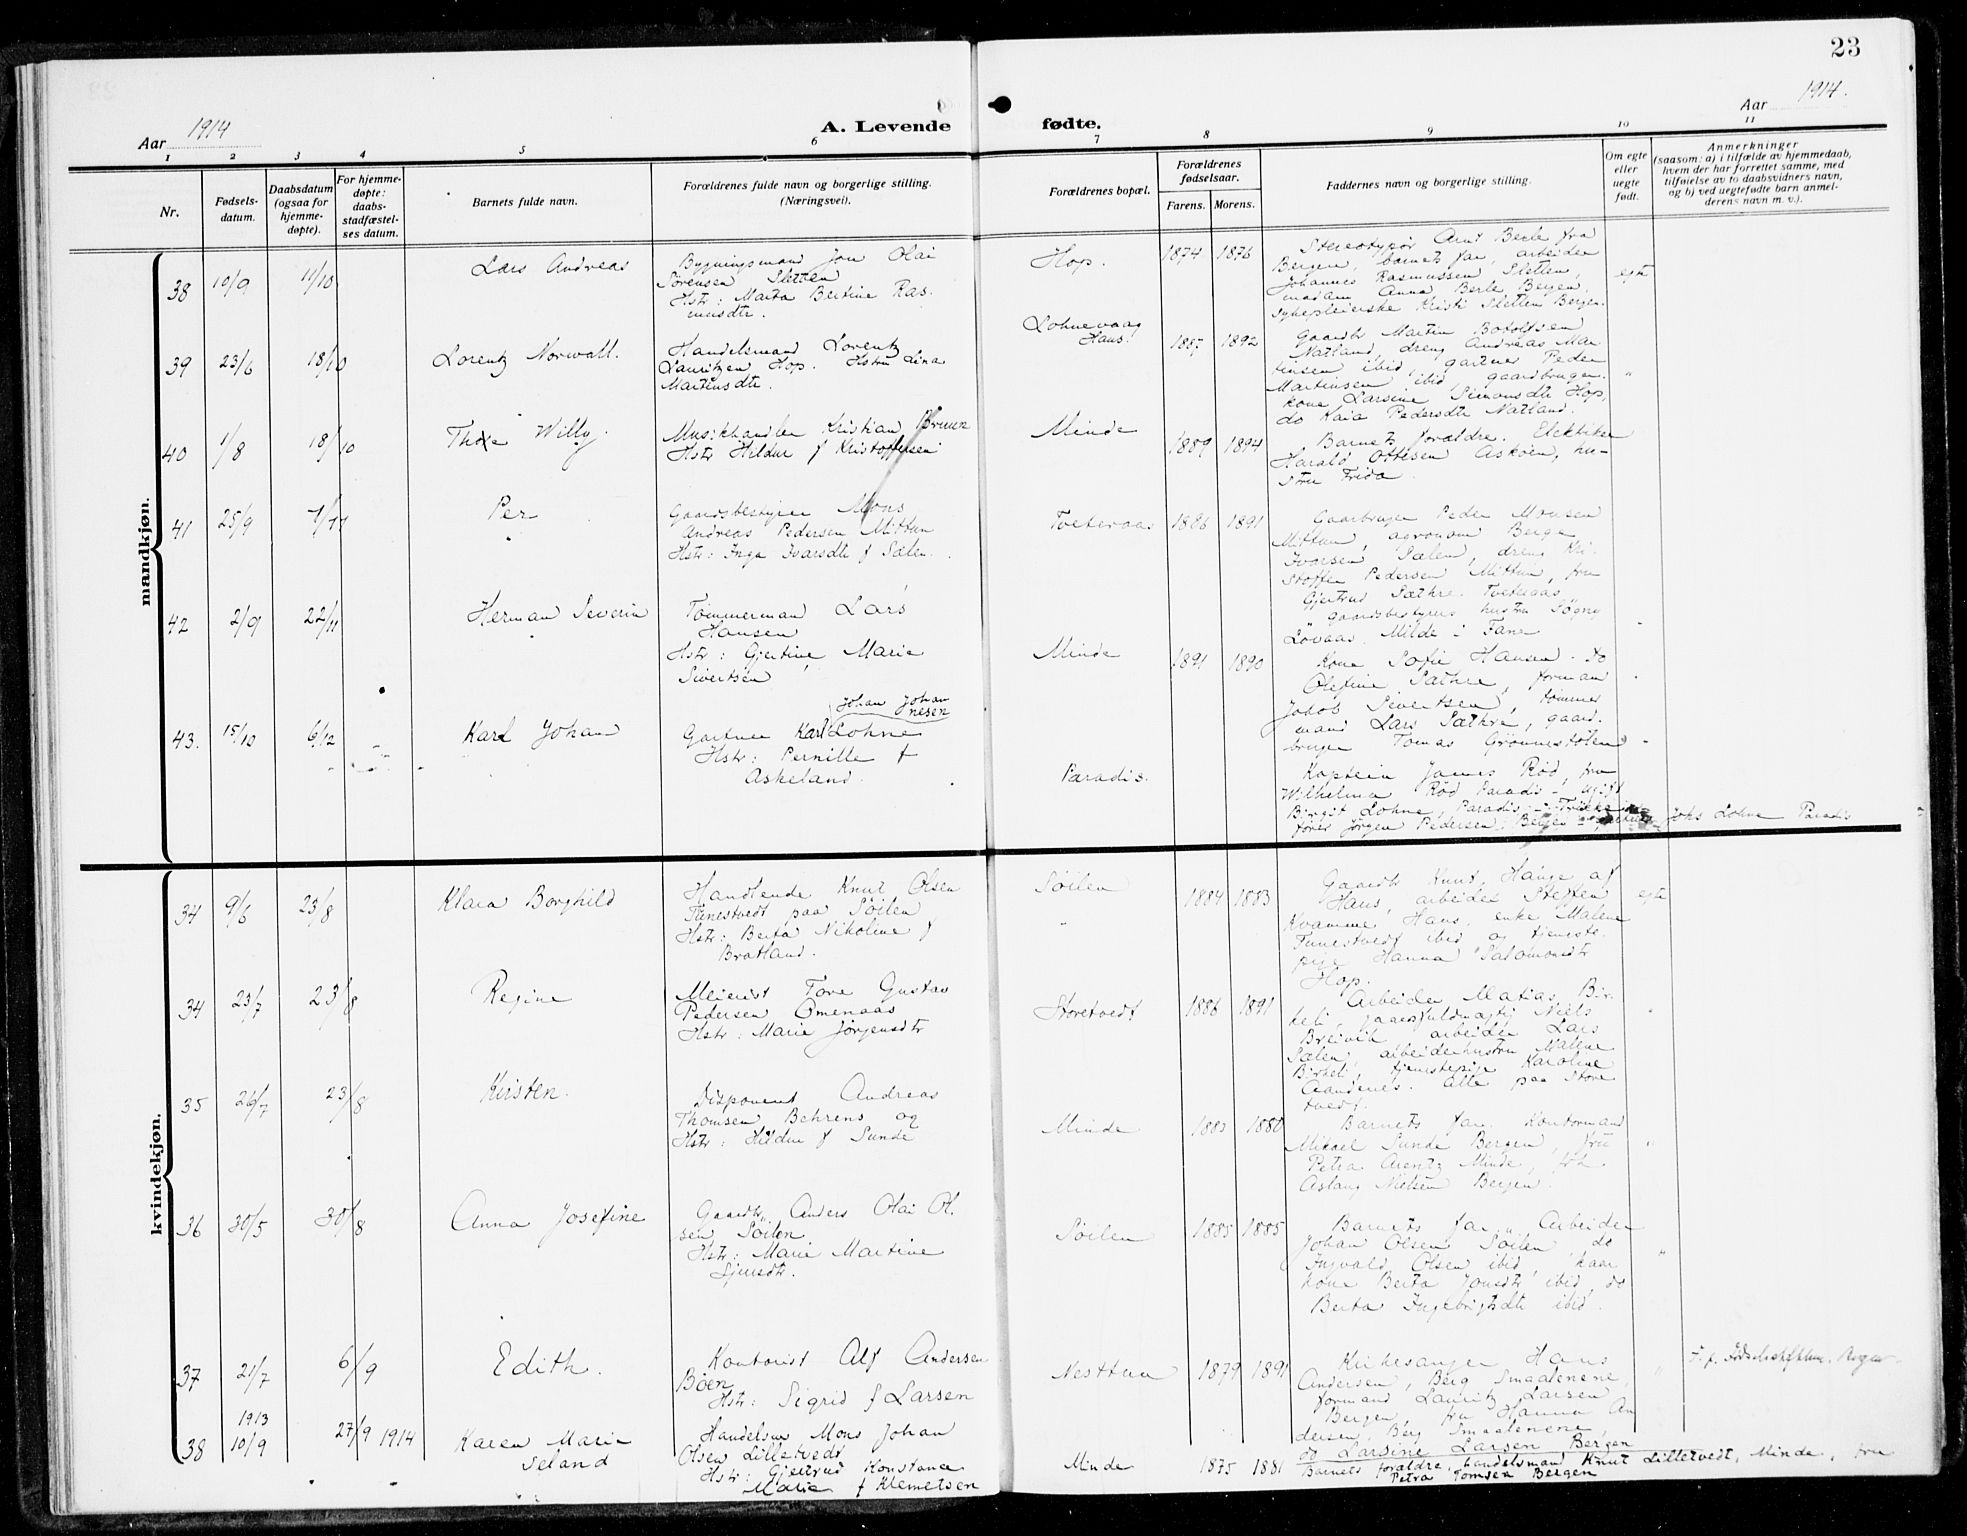 23
Aar 1914
A. Levende
fødte.
Aar 1914.
1 2 3 4 5 6 7 8 9 10 11
Nr.
Fødsels-
datum.
Daabsdatum
(ogsaa for
hjemme-
døpte).
For hjemme-
døpte:
daabs-
stadfæstel-
ses datum.
Barnets fulde navn.
Forældrenes fulde navn og borgerlige stilling.
(Næringsvei).
Forældrenes bopæl.
Forældrenes
fødselsaar.
Farens. Morens.
Faddernes navn og borgerlige stilling.
Om egte
eller
uegte
født.
Anmerkninger
(saasom: a) i tilfælde av hjemmedaab,
hvem der har forrettet samme, med
tilføielse av to daabsvidners navn,
og b) ved uegtefødte barn anmel-
derens navn m. v.).
mandkjøn.
38
10/9
11/10
Lars Andreas
Bygningsmand Jon Olai
Sørensen Sletten
Hstr: Marta Bertine Ras-
musdtr.
Hop.
1874 1876
Stereotypør Arnt Berle fra
Bergen, barnets far, arbeider
Johannes Rasmussen Sletten,
madam Anna Berle Bergen,
sykepleierske Kristi Sletten Bergen.
egte
39
23/6
18/10
Lorentz Norwall.
Handelsmand Lorentz
Lauritzen Hop. Hstru Lina
Martinsdtr.
Lohnevaag
Haus.
1887 1892
Gaardbr Martin Botolfsen
Natland, dreng Andreas Mar
tinsen ibid, gartner Peder
Martinsen ibid, gaardbruger-
kone Larsine Simonsdtr Hop,
do Kaia Pedersdtr Natland.
"
40
1/8
18/10
Thore Willy.
Musikhandler Kristian Bruun
Hstr Hildur f Kristoffersen
Minde
1889 1894
Barnets forældre. Elektriker
Harald Ottesen Askøen, hu-
stru Frida.
41
25/9
1/11
Per
Gaardsbestyrer Mons
Andreas Pedersen Mittun
Hstr: Inga Ivarsdtr f Sælen.
Tveteraas
1886 1891
Gaarbruger Peder Monsen
Mittun, agronom Berge
Ivarsen Sælen, dreng Kri-
stoffer Pedersen Mittun, fru
Gjertrud Sæthre. Tveteraas,
gaardsbestyrers hustru
Løvaas, Milde i Fane
42
2/9
22/11
Herman Severin
Tømmermand Lars
Hansen
Hstr: Gjertine Marie
Sivertsen
Minde
1891 1890
Kone Sofie Hansen. do
Olefine Sæthre, formand
Jakob Sivertsen, tømmer
mand Lars Sæthre, gaard-
bruger Tomas Grønnestølen
43.
15/10
6/12
Karl Johan
Johan Johan
nesen
Gartner Karl Lohne
Hstr: Pernille f
Askeland.
Paradis.
Kaptein James Rød, fru
Wilhelmina Rød Paradis - ugift
Birgit Lohne, Paradis -
fører Jørgen Pedersen, Bergen - Johs Lohne Paradis
kvindekjøn.
34
9/6
23/8
Klara Borghild
Handlende Knut Olsen
Tunestvedt paa Søilen
Hstr: Berta Nikoline f
Bratland.
Søilen
"
1884 1883
Gaardbr Knut Hauge af
Haus, arbeider Steffen
Kvamme Haus, enke Malene
Tunestvedt ibid og tjeneste-
pige Hanna Salomonsdtr
Hop.
egte
34
23/7
23/8
Regine
Meierist Tore Gustav
Pedersen Omenaas
Hstr: Marie Jørgensdtr
Storetvedt
1886 1891
Arbeider Matias Bir-
keli, gaardsfuldmægtig Niels
Breivik arbeider Lars
Sælen, arbeiderhustru Malene
Birkeli, tjenestepige Karoline
Aandenes. Alle paa Store
tvedt.
35
26/7
23/8
Kirsten.
Disponent Andreas
Thomsen Behrens og
Hstr: Hildur f Sunde
Minde
1883 1880
Barnets far. Kontormand
Mikael Sunde Bergen, fru
Petra Arentz Minde, frk
Aslaug Nielsen Bergen.
"
36
30/5
30/8
Anna Josefine
Gaardbr. Anders Olai Ol-
sen Søilen
Hstr: Marie Martine
Sjursdtr.
Søilen
1885 1885
Barnets far, Arbeider
Johan Olsen Søilen, do
Ingvald Olsen ibid, gaar
kone Berta Jonsdtr ibid, do
Berta Ingebrigtsdtr ibid.
"
37
21/7
6/9
Edith.
Kontorist Alf Andersen
Bøen
Hstr: Sigrid f Larsen
Nesttun
1879 1891
Kirkesanger Hans
Andersen, Berg Smaalenene,
formand Lauritz Larsen
Bergen, fru Hanna An
dersen, Berg Smaalenene,
do Larsine Larsen Bergen
"
38
1913
10/9
27/9 1914
Karen Marie
Seland
Handelsm Mons Johan
Olsen Lilletvedt
Hstr: Gjertrud Konstance
Marie f Klemetsen
Minde
1875 1881
Barnets forældre, handelsmand Knut Lilletvedt, Minde, fru
Petra Tomsen Bergen